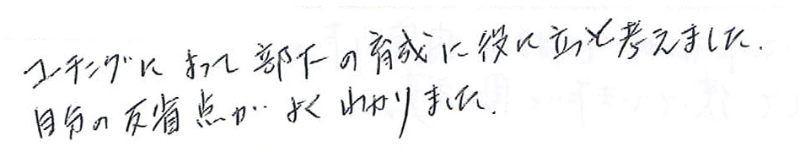 コーチングによって部下の育成に役に立つと考えました.
自分の反省点がよくわかりました.